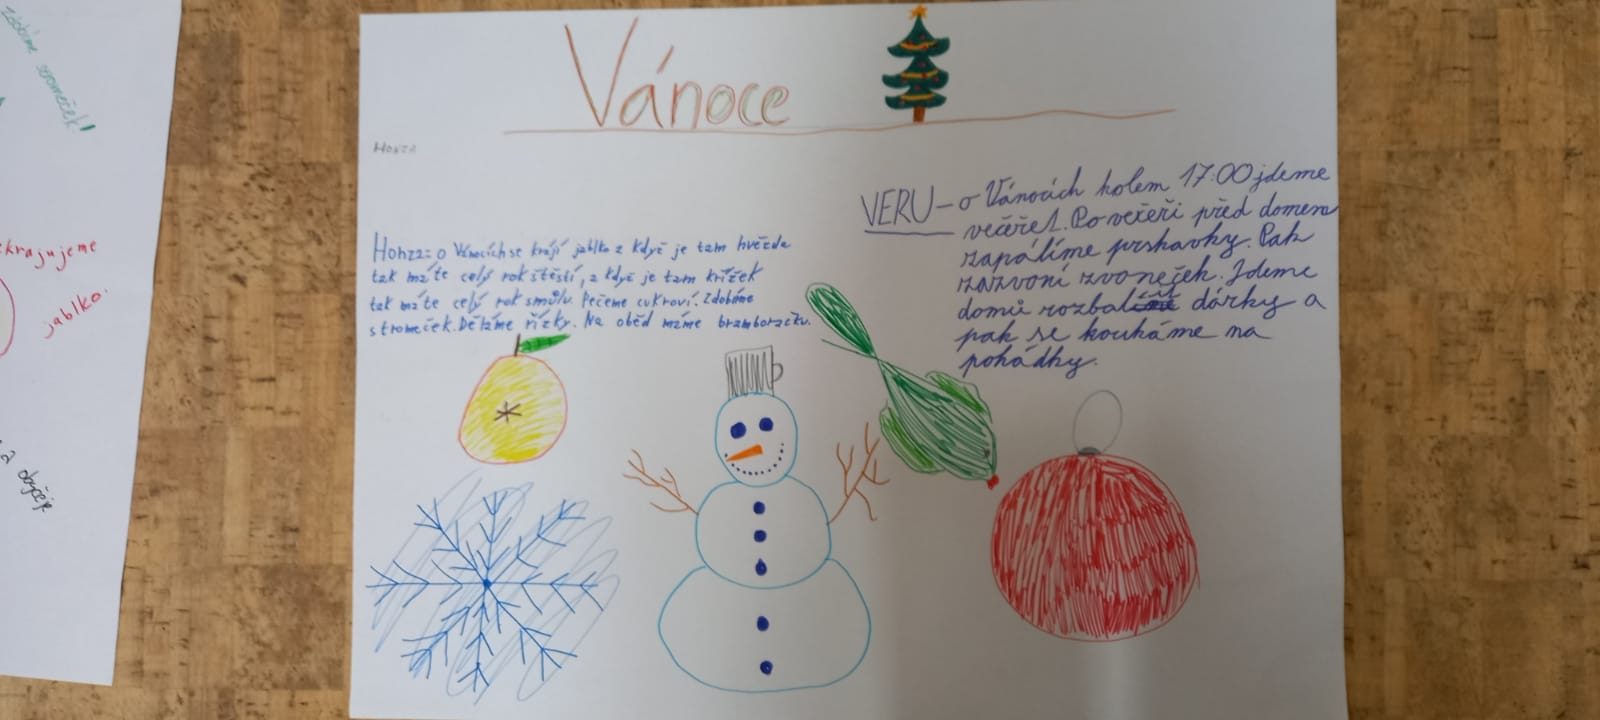 Zdobíme stromeček!
krajujeme
jablko.
Vánoce
Honza
Honza= o Vánocích se krájí jablko a když je tam hvězda
tak máte celý rok štěstí, a když je tam křížek
tak máte celý rok smůlu. Pečeme cukroví. Zdobíme
stromeček. Děláme řízky. Na oběd máme bramboračku.
VERU - o Vánocích kolem 17:00 jdeme
večeřet. Po večeři před domem
zapálíme prskavky. Pak
zazvoní zvoneček. Jdeme
domů rozbalit dárky a
pak se koukáme na
pohádky.